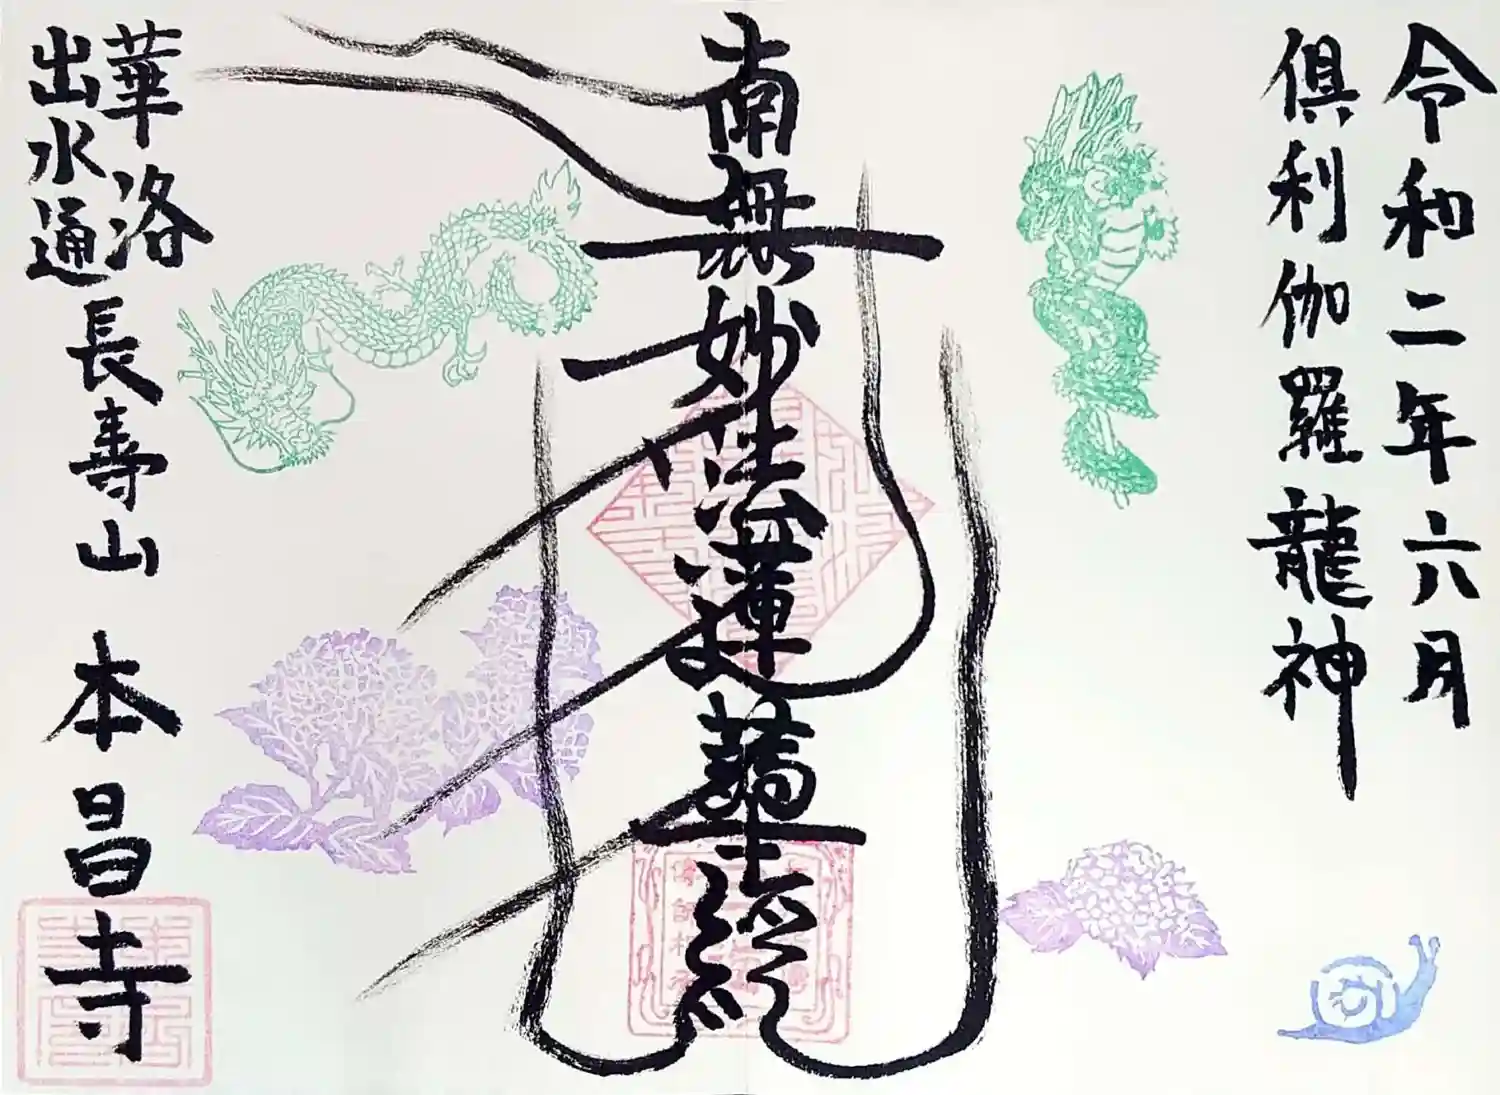 令和二年六月
倶利伽羅龍神
南無妙法蓮華経
華洛
出水通
長壽山 本昌寺